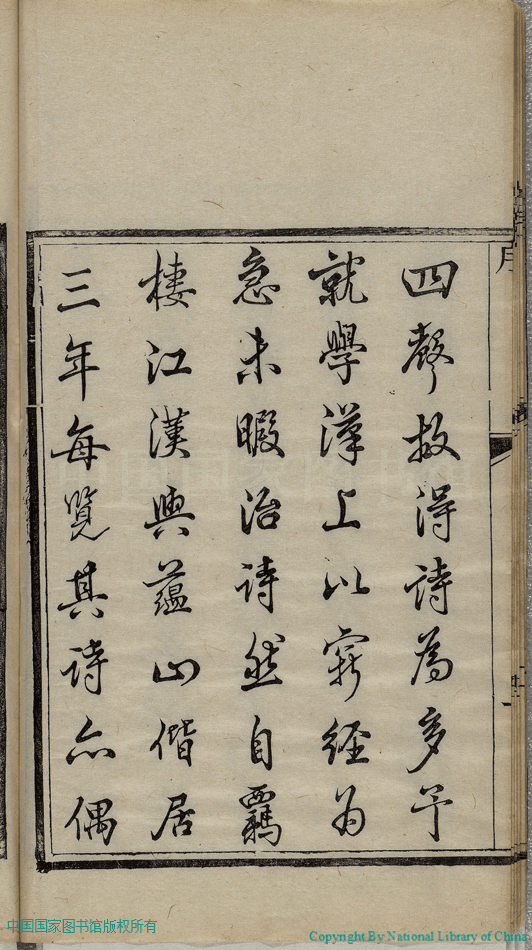 四聲故得詩為多予
就學漢上以窮經為
急未暇治詩然自羈
棲江漢輿蘊山偕居
三年每覽其詩亦偶
序
中国国家图书馆版权所有
Copyright By National Library of China